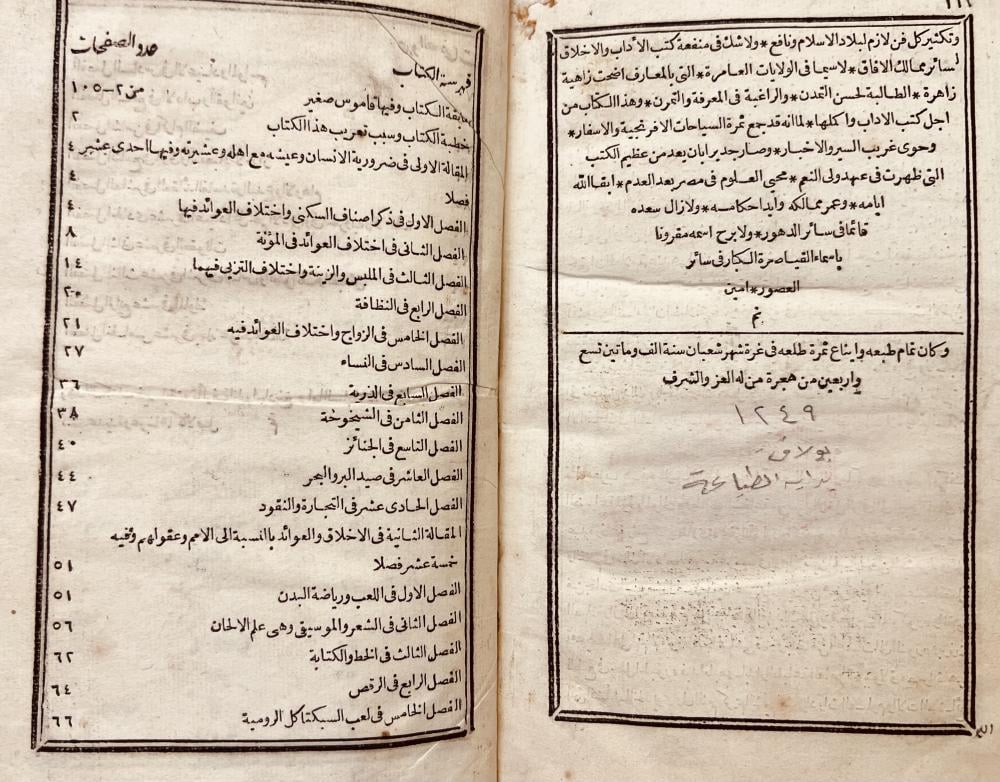 وتكثير كل فن لازم لبلاد الاسلام ونافع * ولاشك فى منفعة كتب الآداب والاخلاق
لسائر ممالك الآفاق * لاسيما فى الولايات العامرة * التى بالمعارف اضحت زاهية
زاهرة * الطالبة لحسن التمدن * والراغبة فى المعرفة والتمرن * وهذا الكتاب من
اجل كتب الاداب واكملها * لما انه قد جمع ثمرة السياحات الافرنجية والاسفار *
وحوى غريب السير والاخبار * وصار جديرا بان يعد من عظيم الكتب
التى ظهرت فى عهد ولى النعم * محيى العلوم فى مصر بعد العدم * ابقا الله
ايامه * وعمر ممالكه وأيد احكامه * ولازال سعده
قائما فى سائر الدهور * ولا برح اسمه مقرونا
باسماء القياصرة الكبار فى سائر
العصور * امين
تم
وكان تمام طبعه وايناع ثمرة طلعه فى غرة شهر شعبان سنة الف وماتين تسع
واربعين من هجرة من له العز والشرف
١٢٤٩
بولاق
بداية الطباعة
فهرسة الكتاب
عدد الصفحات
وفيها قاموس صغير
من ٢-١٠٥
خطبة الكتاب وسبب تعريب هذا الكتاب
٢
المقالة الاولى فى ضرورية الانسان وعيشه مع اهله وعشيرته وفيها احدى عشر
٤
فصلا
٤
الفصل الاول فى ذكر اصناف السكنى واختلاف العوائد فيها
٤
الفصل الثانى فى اختلاف العوائد فى المؤنة
٨
الفصل الثالث فى الملبس والزينة واختلاف التزيى فيهما
١٤
الفصل الرابع فى النظافة
٢٠
الفصل الخامس فى الزواج واختلاف العوائد فيه
٢١
الفصل السادس فى النساء
٢٧
الفصل السابع فى الذرية
٣٦
الفصل الثامن فى الشيخوخة
٣٨
الفصل التاسع فى الجنائز
٤٠
الفصل العاشر فى صيد البر والبحر
٤٤
الفصل الحادى عشر فى التجارة والنقود
٤٧
المقالة الثانية فى الاخلاق والعوائد بالنسبة الى الامم وعقولهم وفيه
خمسة عشر فصلا
٥١
الفصل الاول فى اللعب ورياضة البدن
٥١
الفصل الثانى فى الشعر والموسيقى وهى علم الالحان
٥٦
الفصل الثالث فى الخط والكتابة
٦٢
الفصل الرابع فى الرقص
٦٤
الفصل الخامس فى لعب السبكتاكل الرومية
٦٦